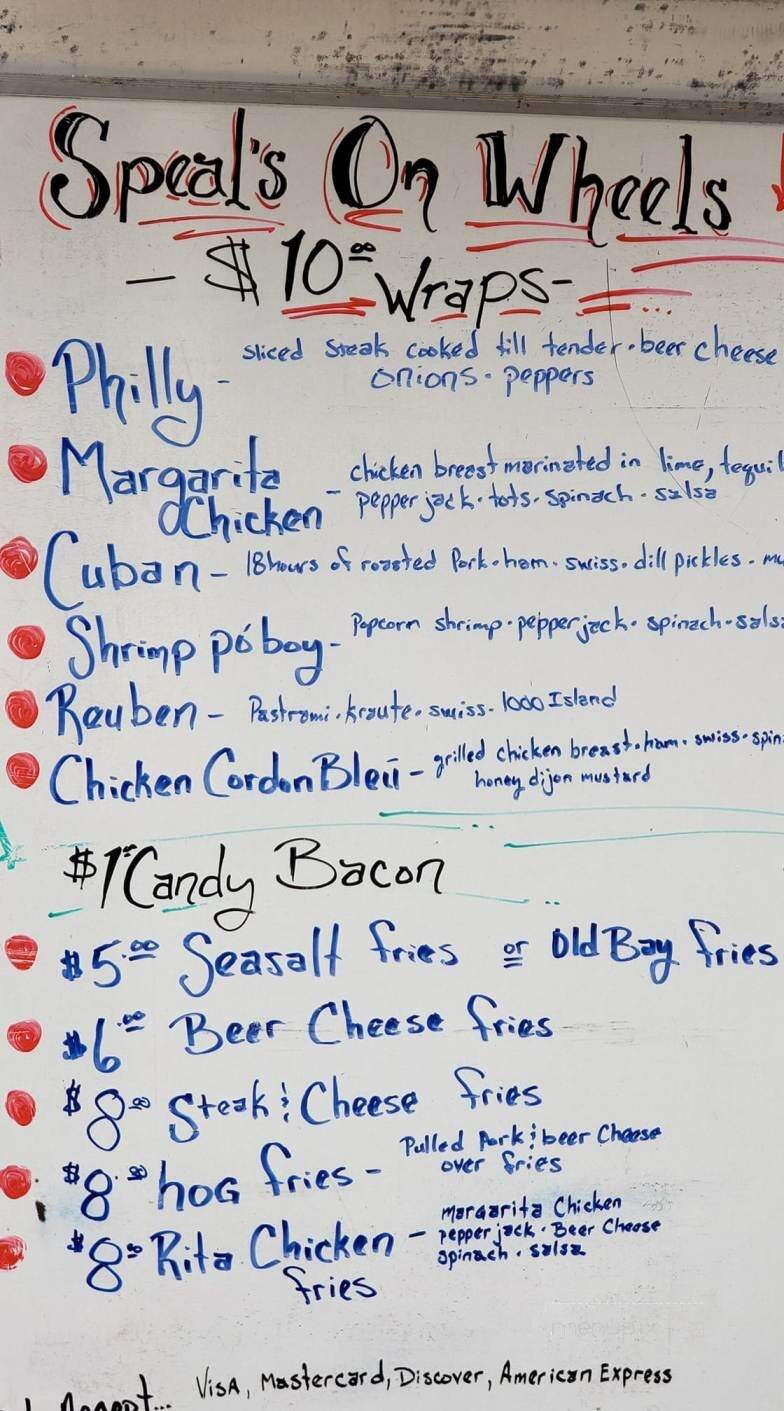 Speal's On Wheels
- $10.00 Wraps-
Philly - sliced steak cooked till tender · beer cheese
onions · peppers
Margarita Chicken - chicken breast marinated in lime, tequil
pepper jack · tots · spinach · salsa
Cuban - 18 hours of roasted Pork · ham · swiss · dill pickles · mu
Shrimp pó boy - Popcorn shrimp · pepper jack · spinach · salsa
Reuben - Pastrami · kraute · swiss · 1000 Island
Chicken Cordon Bleu - grilled chicken breast · ham · swiss · spin
honey dijon mustard
Candy Bacon
$5.00 Seasalt fries or Old Bay fries
$6.00 Beer Cheese fries
$8.00 Steak & Cheese fries
$8.00 hoG fries - Pulled Pork & beer Cheese
over fries
$8.00 Rita Chicken fries - margarita Chicken
pepper jack · Beer Cheese
spinach · salsa
Visa, Mastercard, Discover, American Express